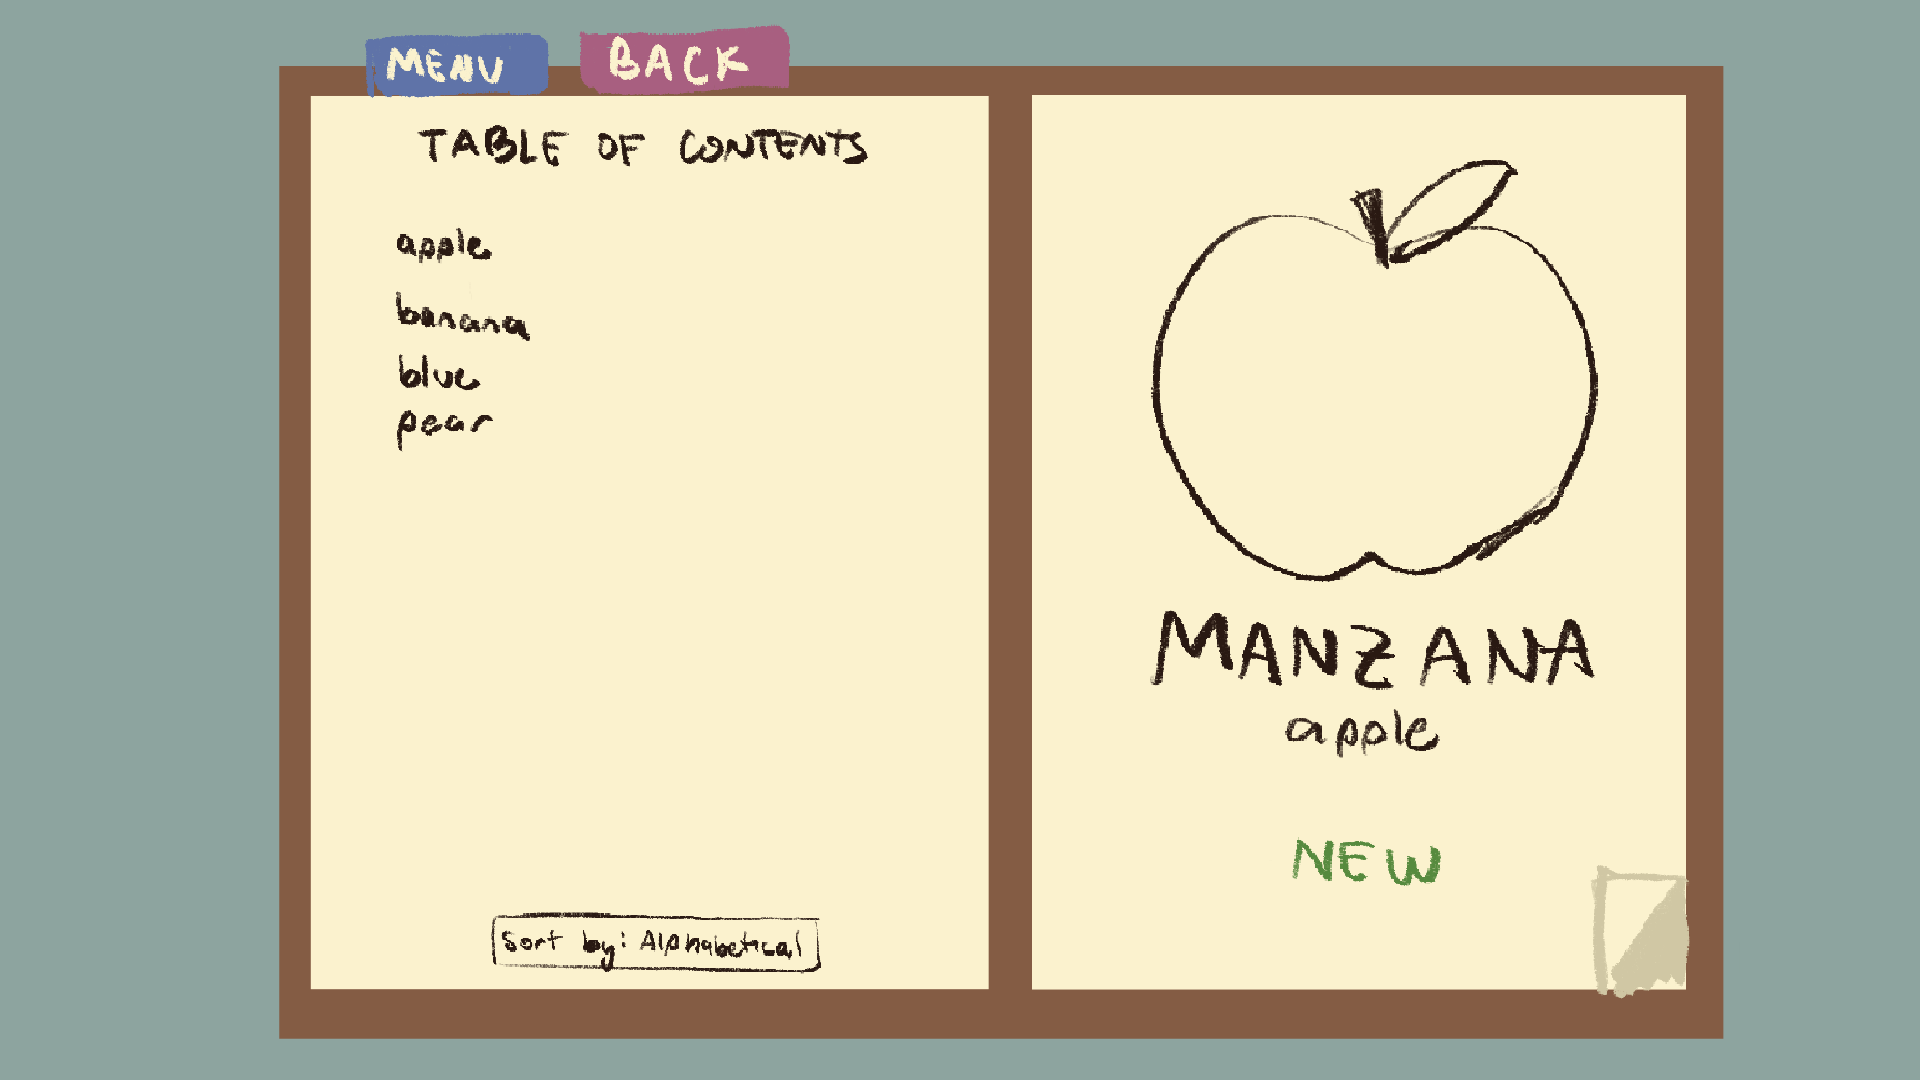 MENU
BACK
TABLE OF CONTENTS
apple
banana
blue
pear
Sort by: Alphabetical
MANZANA
apple
NEW